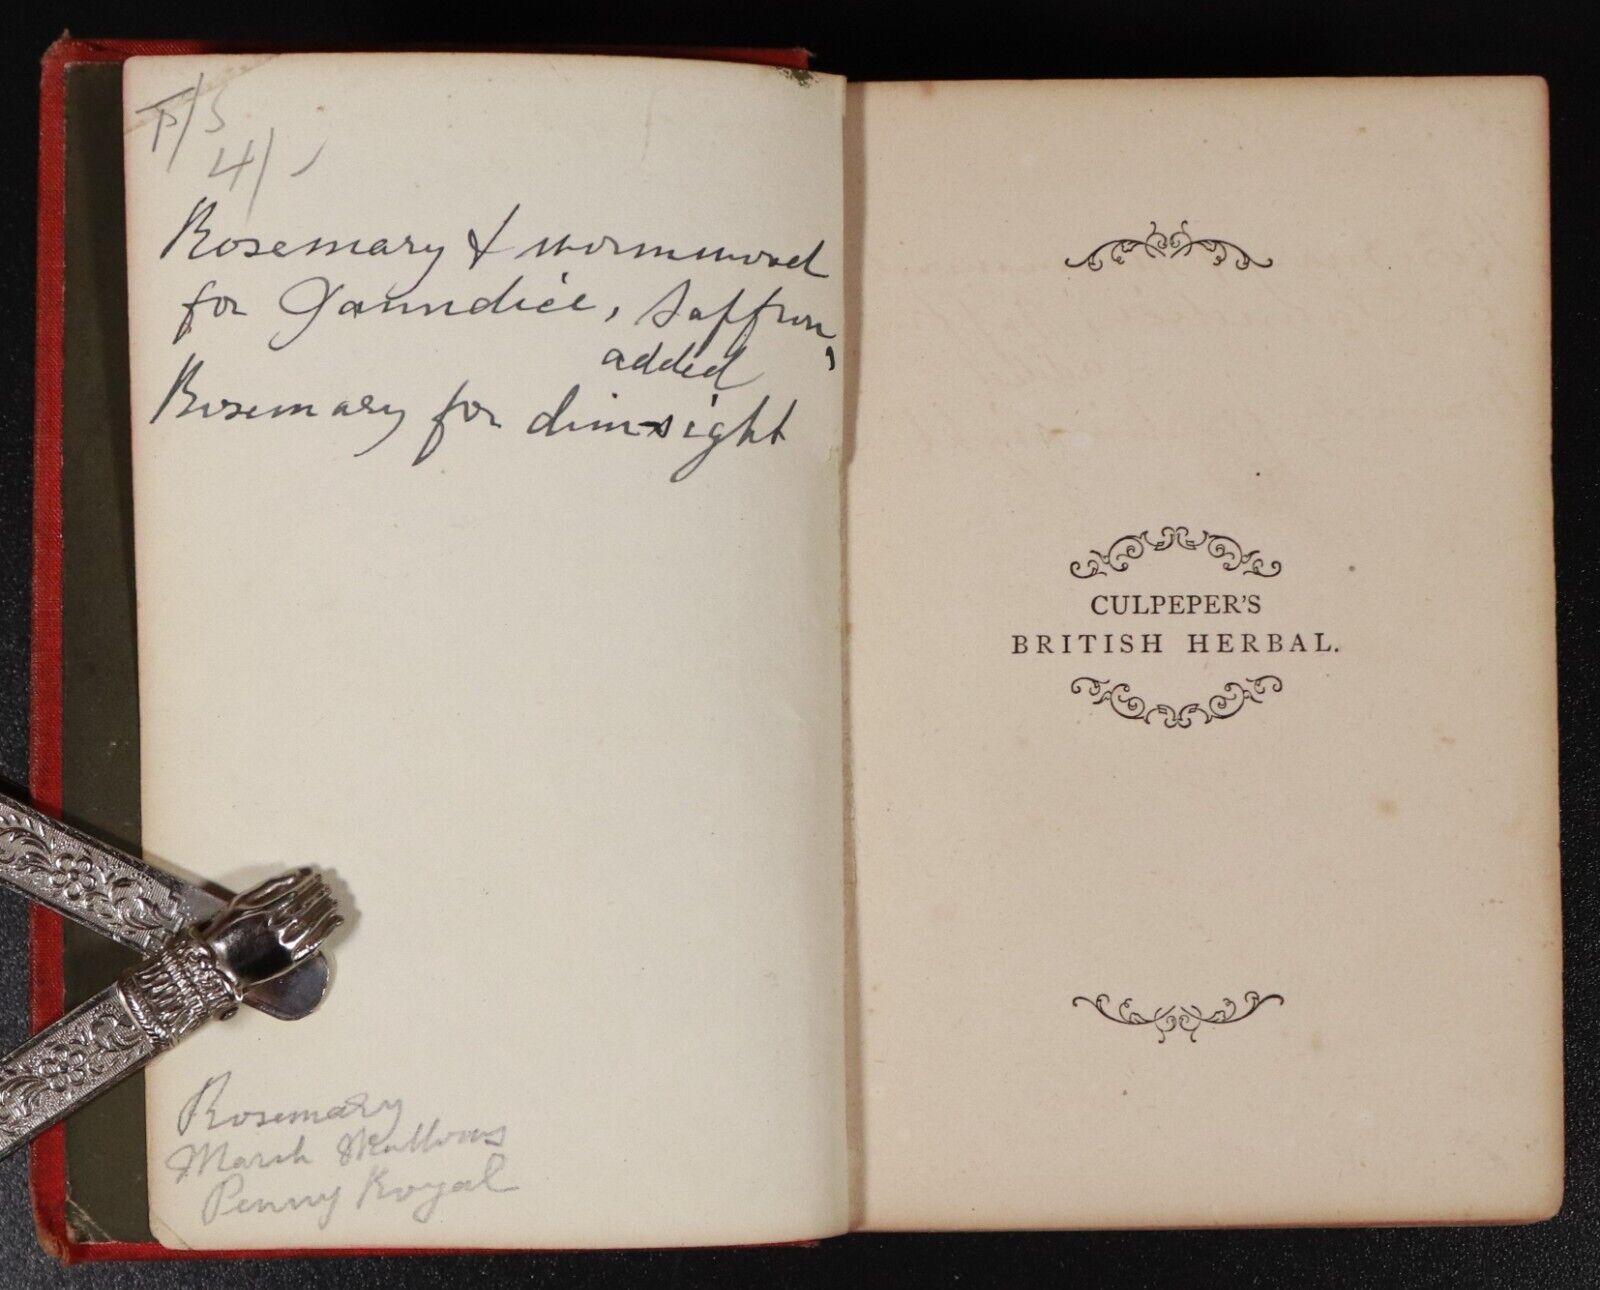 4/
Rosemary & wormwood
for Jaundice, Saffron,
added
Rosemary for dim-sight
Rosemary
Marsh Mallows
Penny Royal
CULPEPER'S
BRITISH HERBAL.